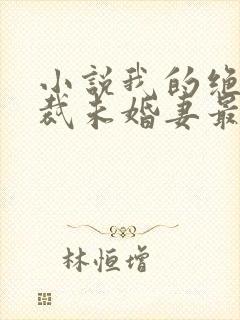 小説我的绝
裁未婚妻最
林恒增